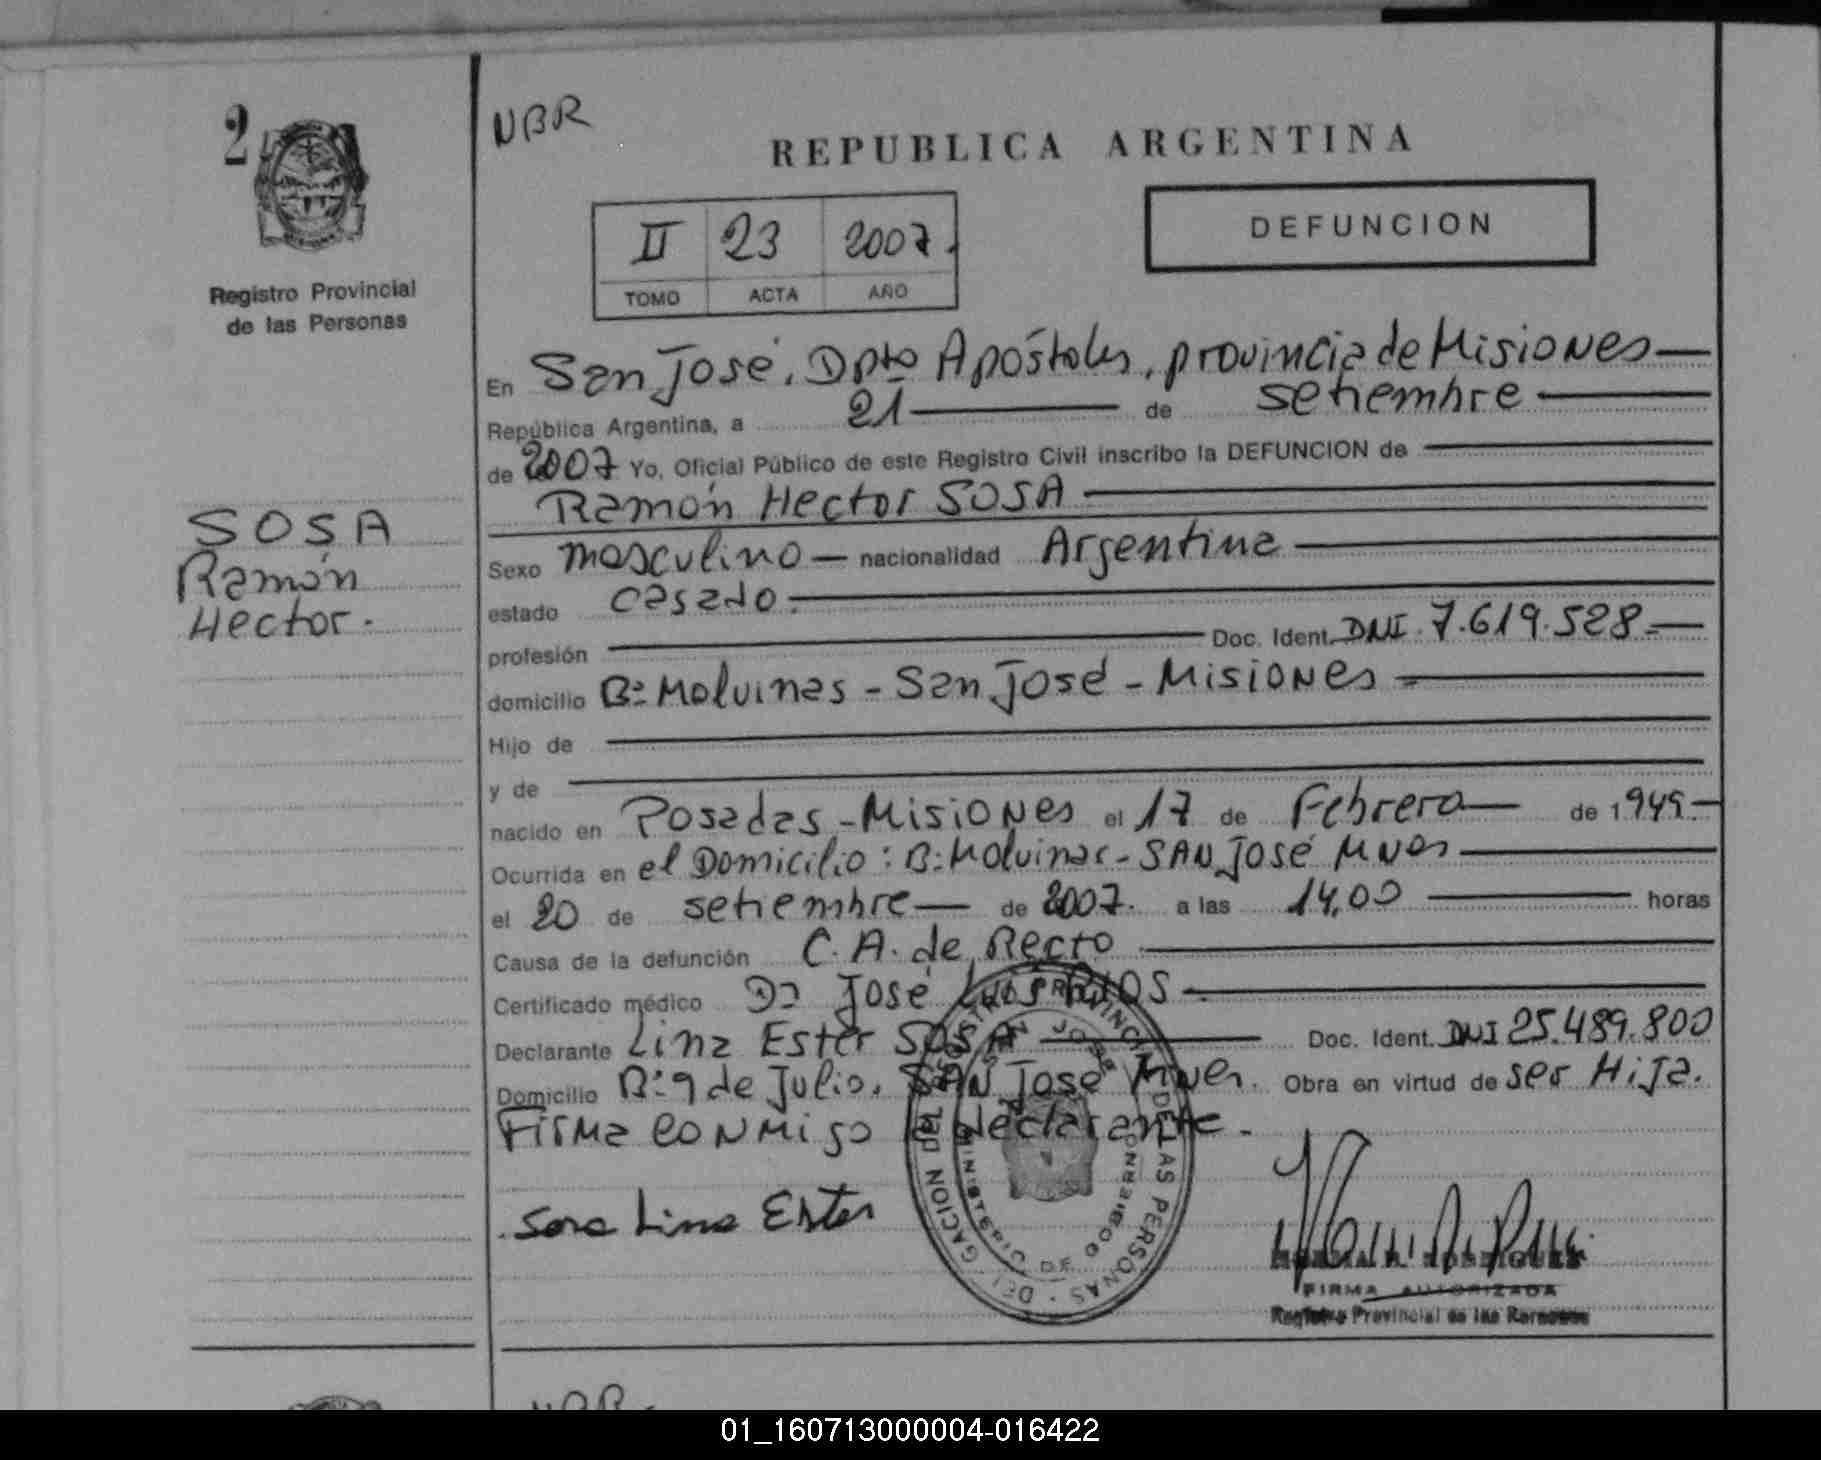 2
NBR
REPUBLICA ARGENTINA
II 23 2007.
TOMO ACTA AÑO
DEFUNCION
Registro Provincial
de las Personas
SOSA
Ramón
Hector.
En San José, Dpto Apóstoles, provincia de Misiones
República Argentina, a 21 de setiembre
de 2007 Yo, Oficial Público de este Registro Civil inscribo la DEFUNCION de
Ramón Hector SOSA
Sexo masculino nacionalidad Argentina
estado casado.
profesión Doc. Ident. DNI 7.619.528
domicilio B: Malvinas - San José - Misiones
Hijo de
y de
nacido en Posadas - Misiones el 17 de Febrero de 1949.
Ocurrida en el Domicilio: B: Malvinas - SAN José Mnes
el 20 de setiembre de 2007. a las 14,00 horas
Causa de la defunción C. A. de Recto
Certificado médico Dr José Luis RIOS
Declarante Lina Ester SOSA Doc. Ident. DNI 25.489.800
Domicilio B: 9 de Julio. SAN José Mnes. Obra en virtud de ser Hija.
Firma conmigo la declarante.
Sosa Lina Ester
DELEGACION DEL REGISTRO PROVINCIAL DE LAS PERSONAS
SAN JOSE
MINISTERIO DE GOBIERNO
RODRIGUEZ
FIRMA AUTORIZADA
Registro Provincial de las Personas
NBR.
01_160713000004-016422